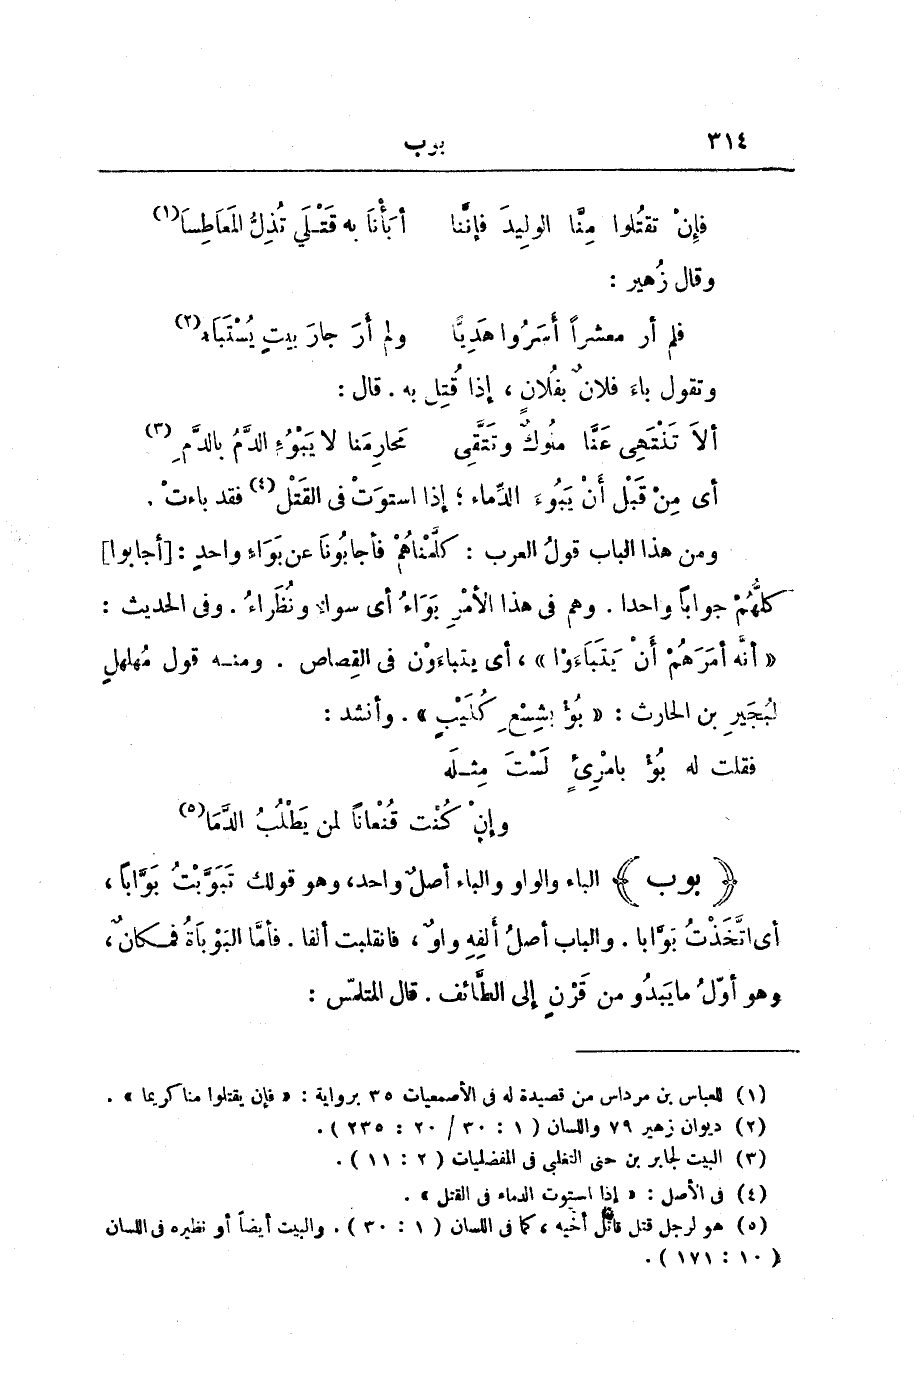 ٣١٤ بوب
فإِنْ تقتُلوا مِنَّا الوليدَ فإنَّنا أبَأْنَا به قَتْـلَي تُذِلُّ المَعَاطِسَا(١)
وقال زُهير :
فلم أر معشراً أَسَرُوا هَدِيًّا ولم أَرَ جارَ بيتٍ يُسْتَبَاء(٢)
وتقول باءَ فلانٌ بفُلانٍ ، إذا قُتِل به . قال :
ألاَ تَنْتَهِي عَنَّا مُلُوكٌ وتَتَّقِى مَحارِمَنا لا يَبْوُءِ الدَّمُ بالدَّمِ (٣)
أى مِنْ قَبْل أَنْ يَبُوءَ الدِّماء ؛ إذا استوَتْ فى القَتْل(٤) فقد باءتْ .
ومن هذا الباب قولُ العرب : كلَّمْناهُمْ فأجابُونَا عن بَوَاءِ واحدٍ : [أجابوا]
كلهُّمْ جواباً واحدا . وهم فى هذا الأمْرِ بَوَاءُ أى سواء ونُظَراءُ . وفى الحديث :
« أنَّه أمَرَهُمْ أَنْ يَتَبَاءَوْا » ، أى يتباءَوْن فى القِصاص . ومنـه قول مُهلهِلٍ
لبُجَيرِ بن الحارث : « بُؤْ بشِسْعِ كُلَيْبٍ » . وأنشد :
فقلت له بُؤْ بامْرِئٍ لَسْتَ مِثـلَه
وإنْ كُنْت قُنْعاناً لمن يَطْلُبُ الدَّمَا(٥)
﴿ بوب ﴾ الباء والواو والباء أصلٌ واحد، وهو قولك تَبَوَّبْتُ بَوَّاباً ،
أى اتَّخَذْتُ بَوَّابا . والباب أصلُ ألِفِهِ واوٌ ، فانقلبت ألفا . فأمَّا البَوْبَاةُ فمـكانٌ ،
وهو أوّلُ مايَبدُو من قَرْنٍ إلى الطَّائف . قال المتلمّس :
(١) للعباس بن مرداس من قصيدة له فى الأصمعيات ٣٥ برواية : « فإن يقتلوا منا كريما » .
(٢) ديوان زهير ٧٩ واللسان ( ١ : ٣٠ / ٢٠ : ٢٣٥ ) .
(٣) البيت لجابر بن حنى التغلبى فى المفضليات ( ٢ : ١١ ) .
(٤) فى الأصل : « إذا استوت الدماء فى القتل » .
(٥) هو لرجل قتل قاتل أخيه ، كما فى اللسان ( ١ : ٣٠ ) . والبيت أيضاً أو نظيره فى اللسان
( ١٠ : ١٧١ ) .